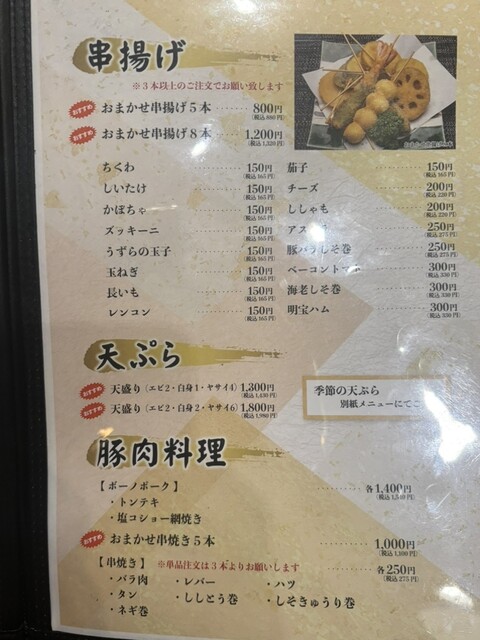 串揚げ
※3本以上のご注文でお願い致します
おすすめ おまかせ串揚げ5本 800円
(税込880円)
おすすめ おまかせ串揚げ8本 1,200円
(税込1,320円)
ちくわ 150円 (税込165円)
しいたけ 150円 (税込165円)
かぼちゃ 150円 (税込165円)
ズッキーニ 150円 (税込165円)
うずらの玉子 150円 (税込165円)
玉ねぎ 150円 (税込165円)
長いも 150円 (税込165円)
レンコン 150円 (税込165円)
茄子 150円 (税込165円)
チーズ 200円 (税込220円)
ししゃも 200円 (税込220円)
アス 250円 (税込275円)
豚バラしそ巻 250円 (税込275円)
ベーコントマト 300円 (税込330円)
海老しそ巻 300円 (税込330円)
明宝ハム 300円 (税込330円)
天ぷら
おすすめ 天盛り(エビ2・白身1・ヤサイ4) 1,300円
(税込1,430円)
おすすめ 天盛り(エビ2・白身2・ヤサイ6) 1,800円
(税込1,980円)
季節の天ぷら
別紙メニューにてご
豚肉料理
【ボーノポーク】 各1,400円
(税込1,540円)
・トンテキ
・塩コショー網焼き
おすすめ おまかせ串焼き5本 1,000円
(税込1,100円)
【串焼き】※単品注文は3本よりお願いします 各250円
(税込275円)
・バラ肉 ・レバー ・ハツ
・タン ・ししとう巻 ・しそきゅうり巻
・ネギ巻